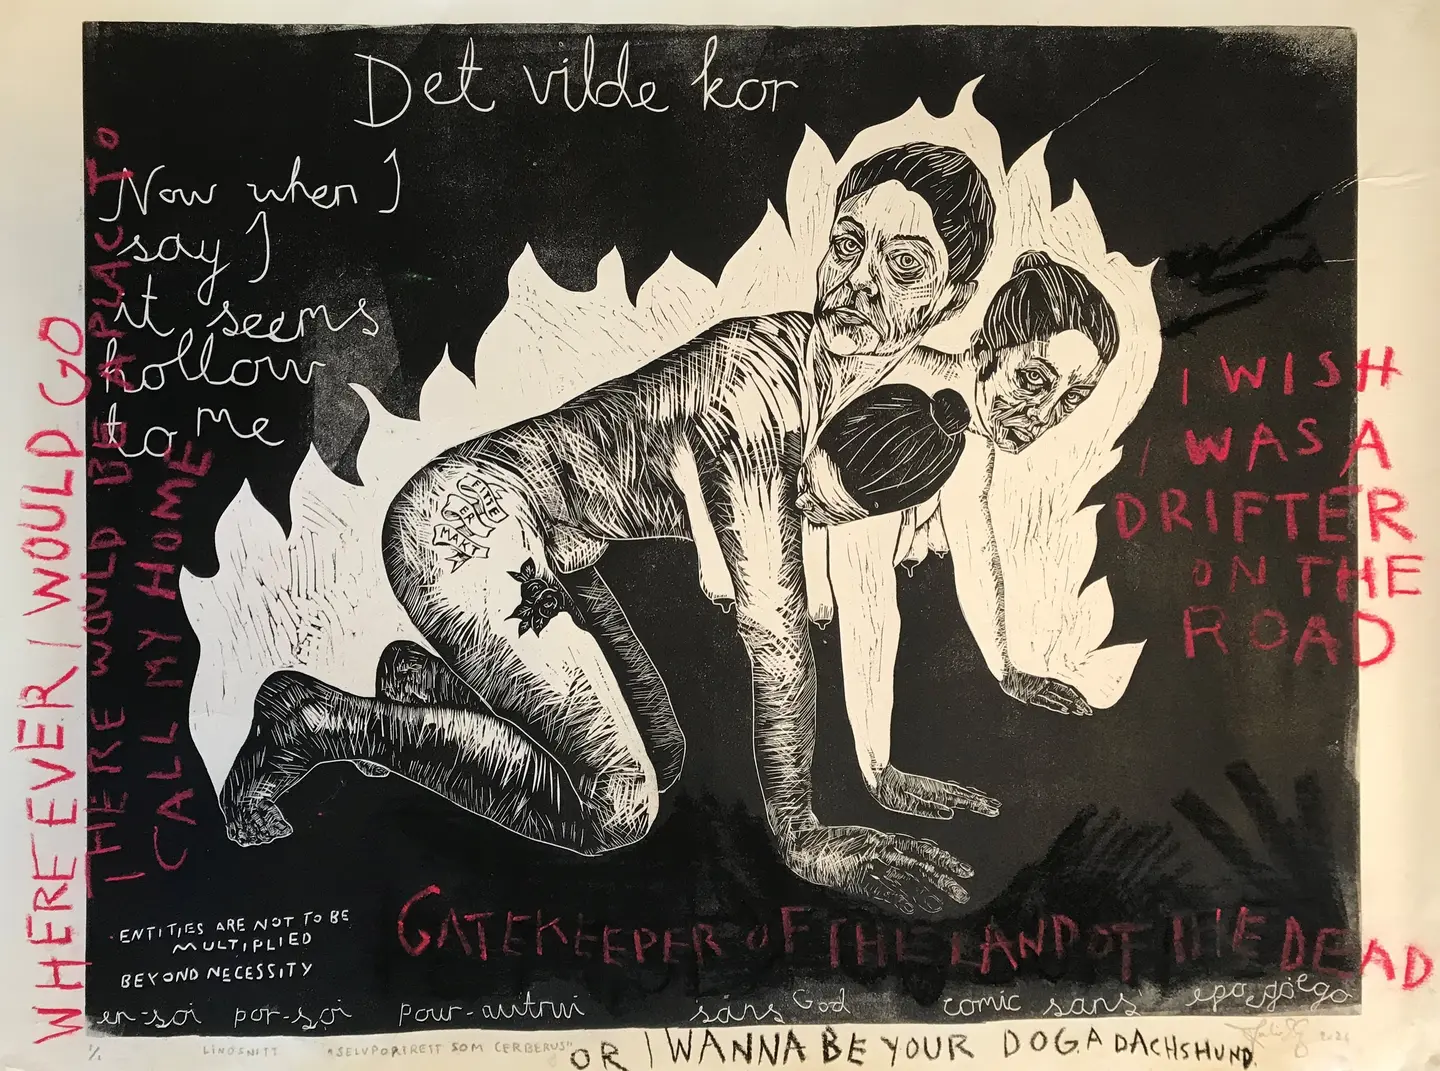 Det vilde kor
Now when I
say I
it seems
hollow
to me
WHEREEVER I WOULD GO
THERE WOULD BE A PLACE TO
CALL MY HOME
I WISH
I WAS A
DRIFTER
ON THE
ROAD
ETTER
ER
MAKT
GATEKEEPER OF THE LAND OF THE DEAD
ENTITIES ARE NOT TO BE
MULTIPLIED
BEYOND NECESSITY
en-soi por-soi pour-autrui sans God comic sans
1/1 LINOSNITT "SELVPORTRETT SOM CERBERUS"
OR I WANNA BE YOUR DOG. A DACHSHUND.